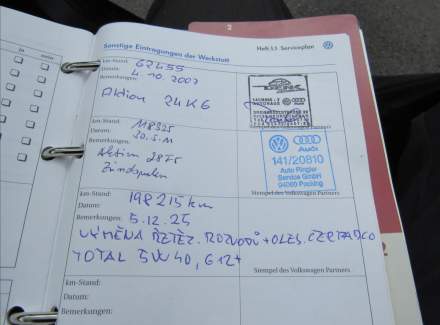 2
Sonstige Eintragungen der Werkstatt
Heft 5.1 Serviceplan
km-Stand: 62455
Datum: 4.10.2007
Bemerkungen:
Aktion 24K6
Stempel des Volkswagen Partners
km-Stand: 118925
Datum: 20.5.11
Bemerkungen:
Aktion 28F5
Zündspulen
Audi
141/20810
Auto Ringler
Service GmbH
94060 Pocking
Stempel des Volkswagen Partners
km-Stand: 198215 km
Datum: 5.12.25
Bemerkungen:
VÝMĚNA ŘETĚZ. ROZVODŮ + OLEJ. ČERPADLO
TOTAL 5W40, G12+
Stempel des Volkswagen Partners
km-Stand:
Datum:
Bemerkungen:
2